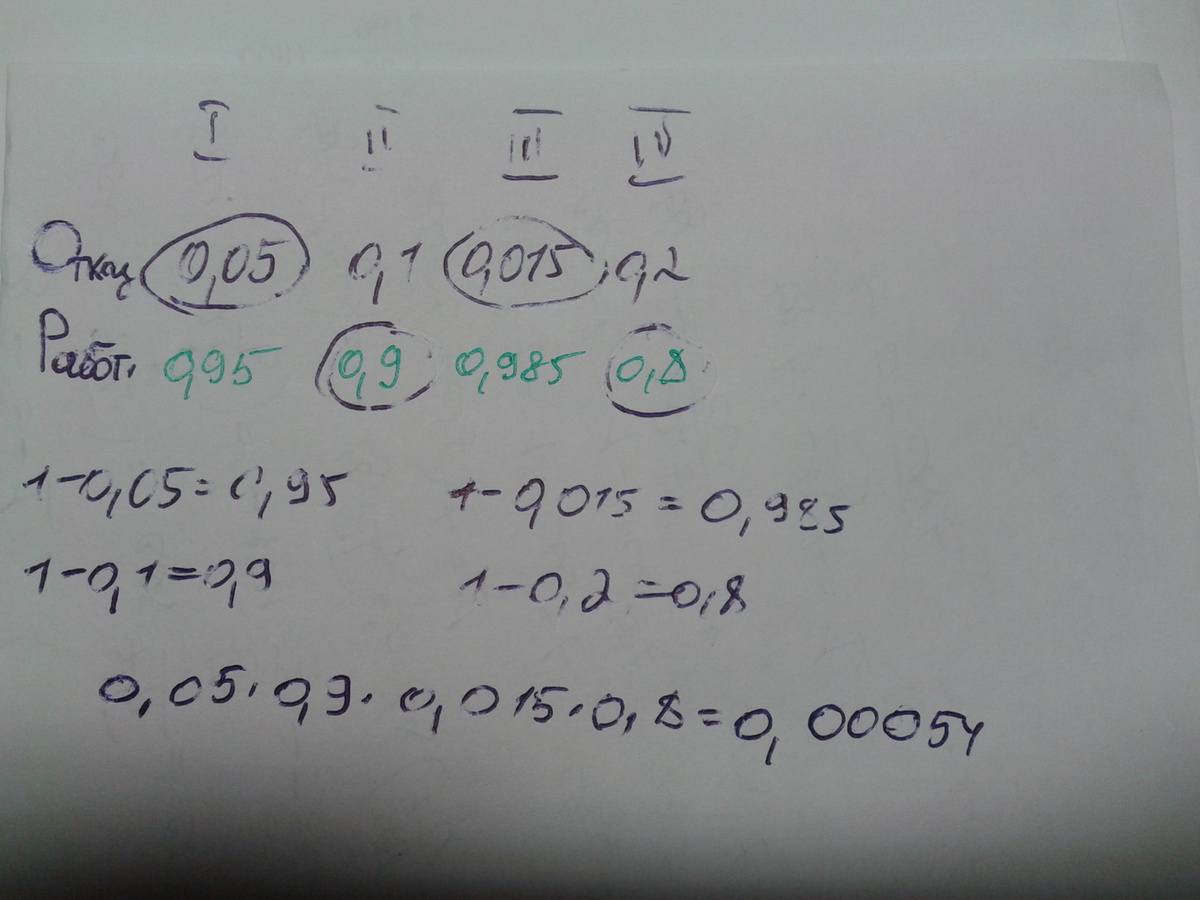 I II III IV
Откаж 0,05 0,1 0,015 0,2
Работ. 0,95 0,9 0,985 0,8
1-0,05=0,95 1-0,015=0,985
1-0,1=0,9 1-0,2=0,8
0,05·0,9·0,015·0,8=0,00054